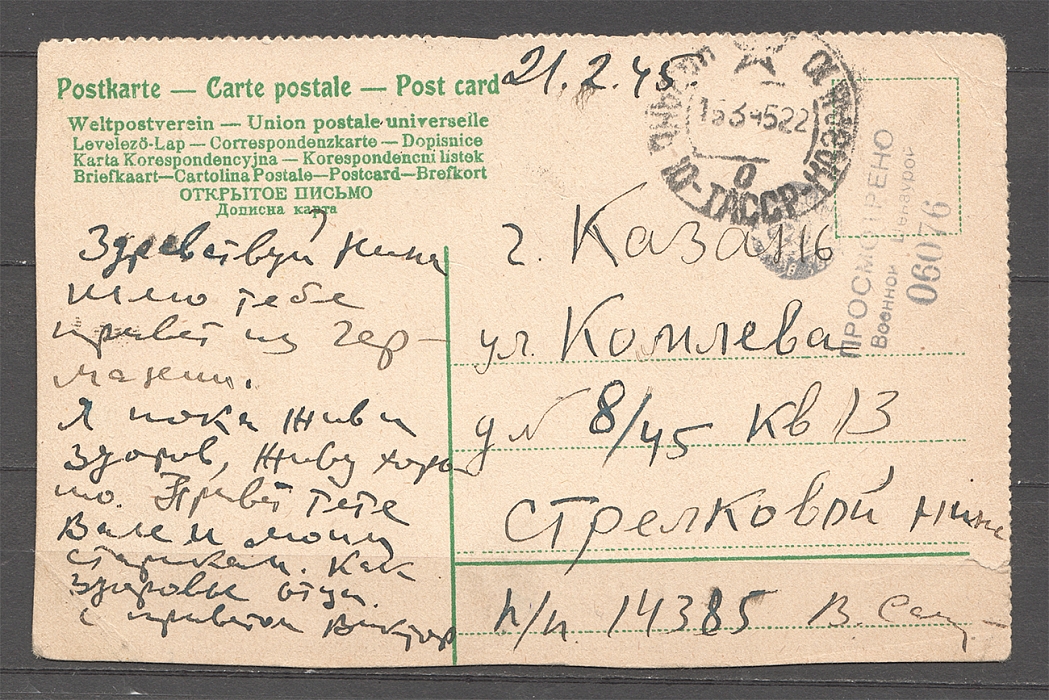 Postkarte — Carte postale — Post card
21.2.45.
Weltpostverein — Union postale universelle
Levelező-Lap — Correspondenzkarte — Dopisnice
Karta Korespondencyjna — Korespondenčni listek
Briefkaart—Cartolina Postale—Postcard—Brefkort
ОТКРЫТОЕ ПИСЬМО
Дописна карта
Здравствуй Нина
шлю тебе
привет из Гер-
мании.
Я пока жив и
здоров, живу хоро
шо. Привет тете
Вале и моим
старикам. Как
здоровье отца.
с приветом Виктор
г. Казань
ул. Комлева
д № 8/45 кв 13
Стрелковой Нине
п/п. 14385 В.
16 3 45 22
ТАССР
ПРОСМОТРЕНО
Военной Цензурой
06076